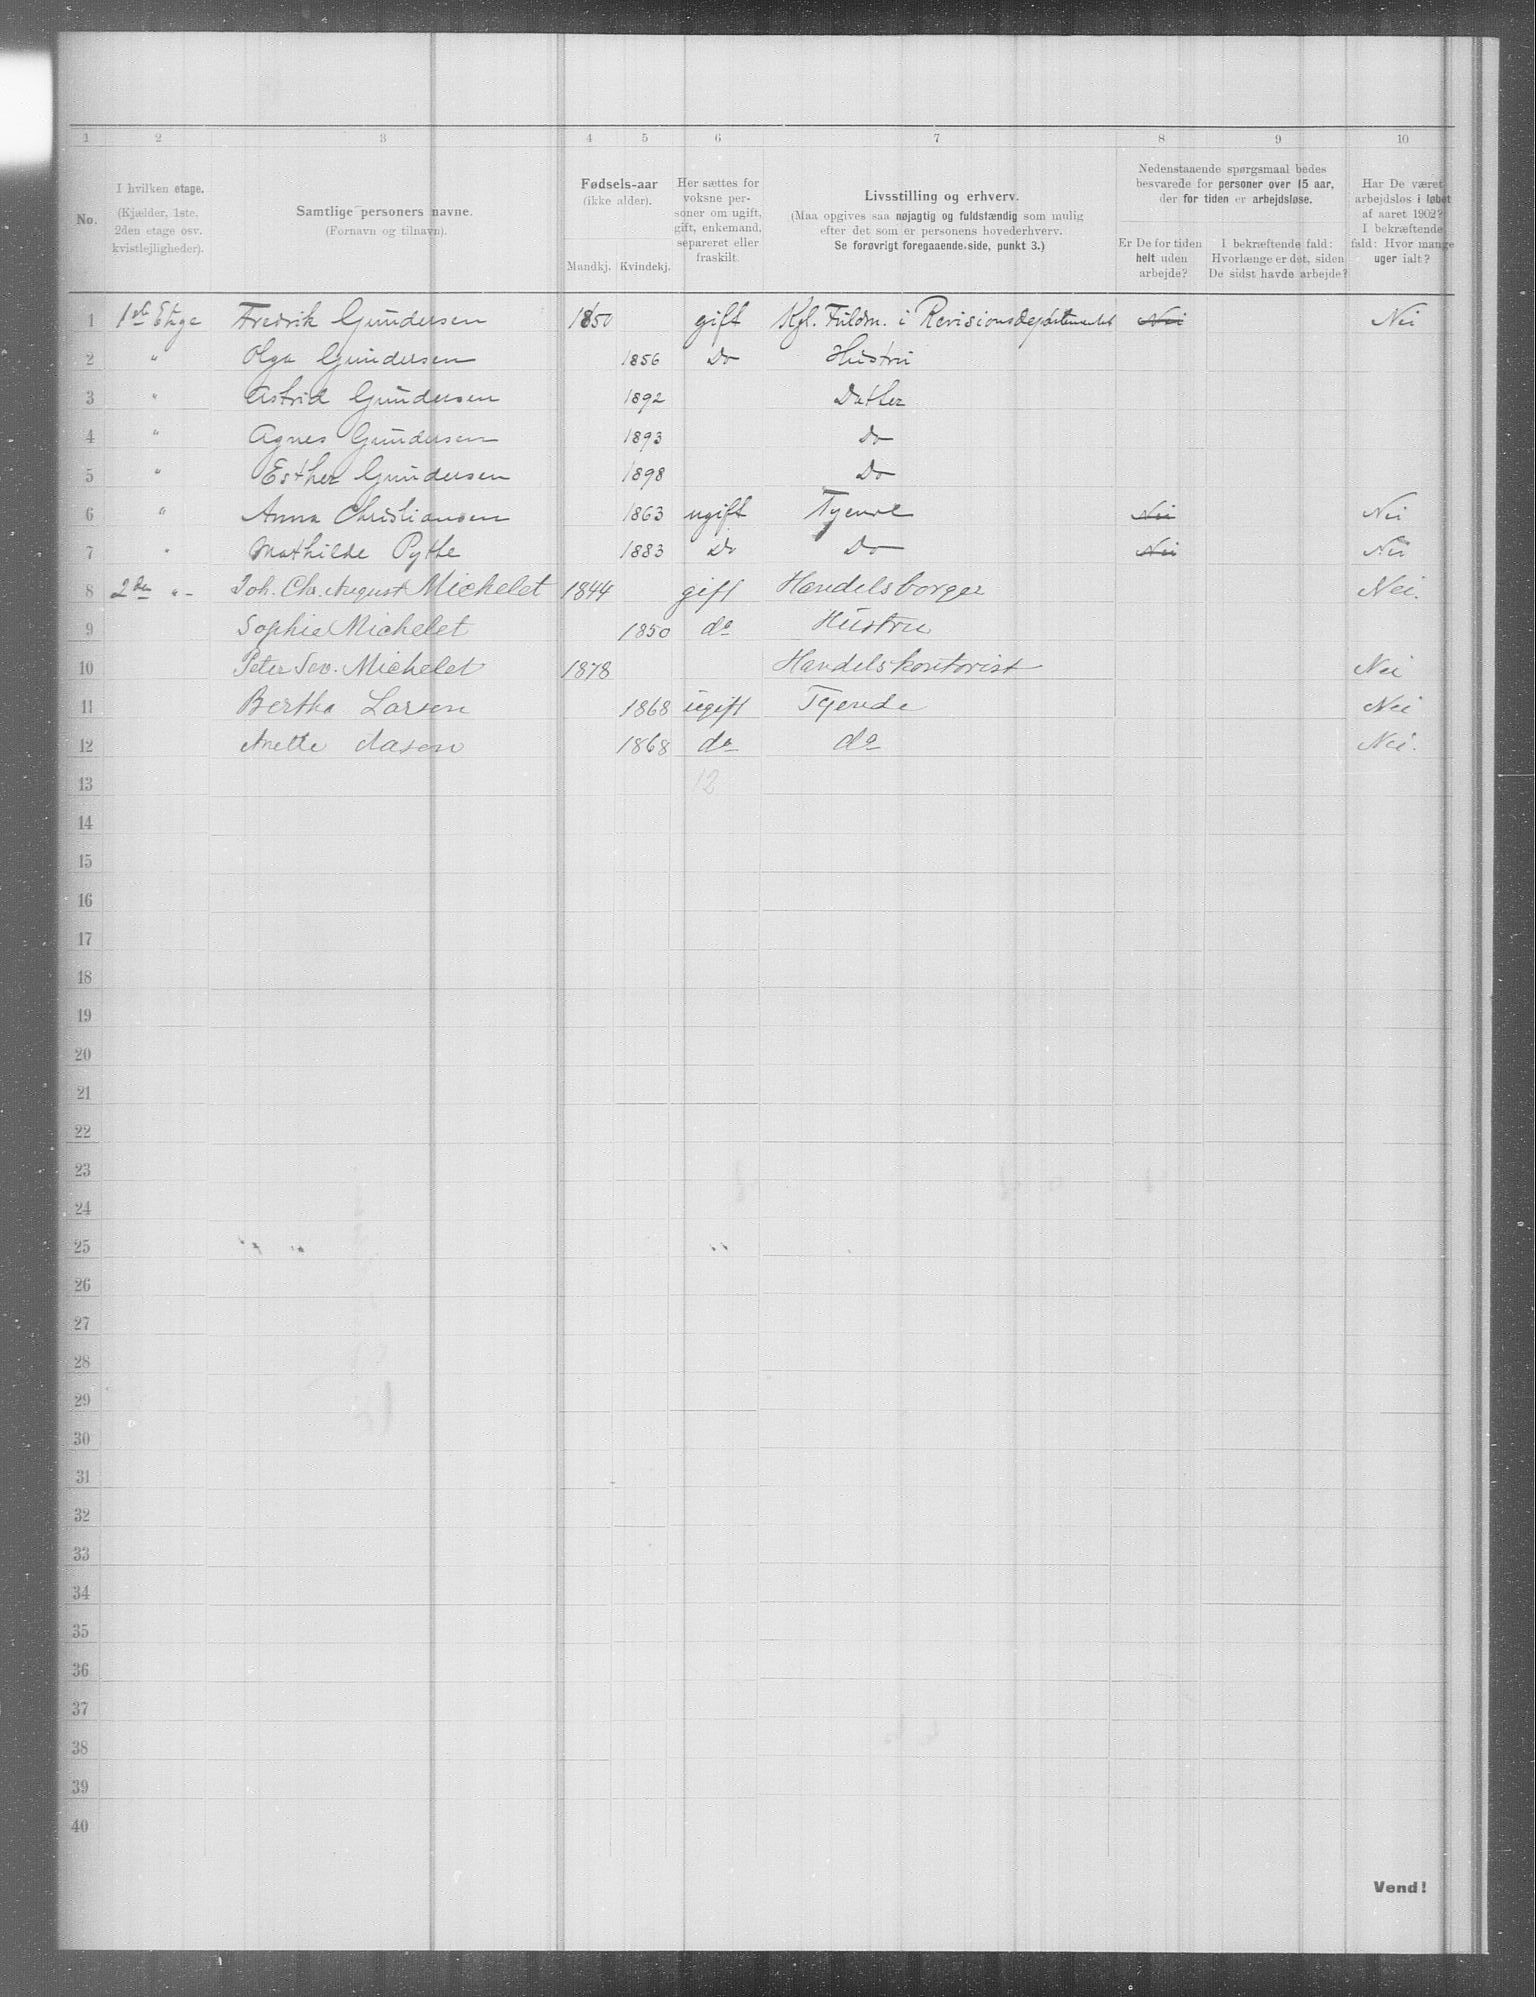 1 2 3 4 5 6 7 8 9 10
No.
I hvilken etage.
(Kjælder, 1ste.
2den etage osv.
kvistlejligheder).
Samtlige personers navne.
(Fornavn og tilnavn).
Fødsels-aar
(ikke alder).
Mandkj. Kvindekj.
Her sættes for
voksne per-
soner om ugift,
gift, enkemand,
separeret eller
fraskilt.
Livsstilling og erhverv.
(Maa opgives saa nøjagtig og fuldstændig som mulig
efter det som er personens hovederhverv.
Se forøvrigt foregaaende side, punkt 3.)
Nedenstaaende spørgsmaal bedes
besvarede for personer over 15 aar,
der for tiden er arbejdsløse.
Er De for tiden
helt uden
arbejde?
I bekræftende fald:
Hvorlænge er det, siden
De sidst havde arbejde?
Har De været
arbejdsløs i løbet
af aaret 1902?
I bekræftende
fald: Hvor mange
uger ialt?
1 1ste Etage Fredrik Gundersen 1850 gift Kgl. Fuldm. i Revisionsdepartementet Nei Nei
2 " Olga Gundersen 1856 Do Hustru
3 " Astrid Gundersen 1892 Datter
4 " Agnes Gundersen 1893 Do
5 " Esther Gundersen 1898 Do
6 " Anna Christiansen 1863 ugift Tjenere Nei Nei
7 " Mathilde Pytte 1883 Do Do Nei Nei
8 2den "- Joh. Chr. August Michelet 1844 gift Handelsborger Nei.
9 Sophie Michelet 1850 do Hustru
10 Peter Sev. Michelet 1878 Handelskontorist Nei
11 Bertha Larsen 1868 ugift Tjenede Nei
12 Anette Aasen 1868 do do Nei.
13 12
14
15
16
17
18
19
20
21
22
23
24
25
26
27
28
29
30
31
32
33
34
35
36
37
38
39
40
Vend!